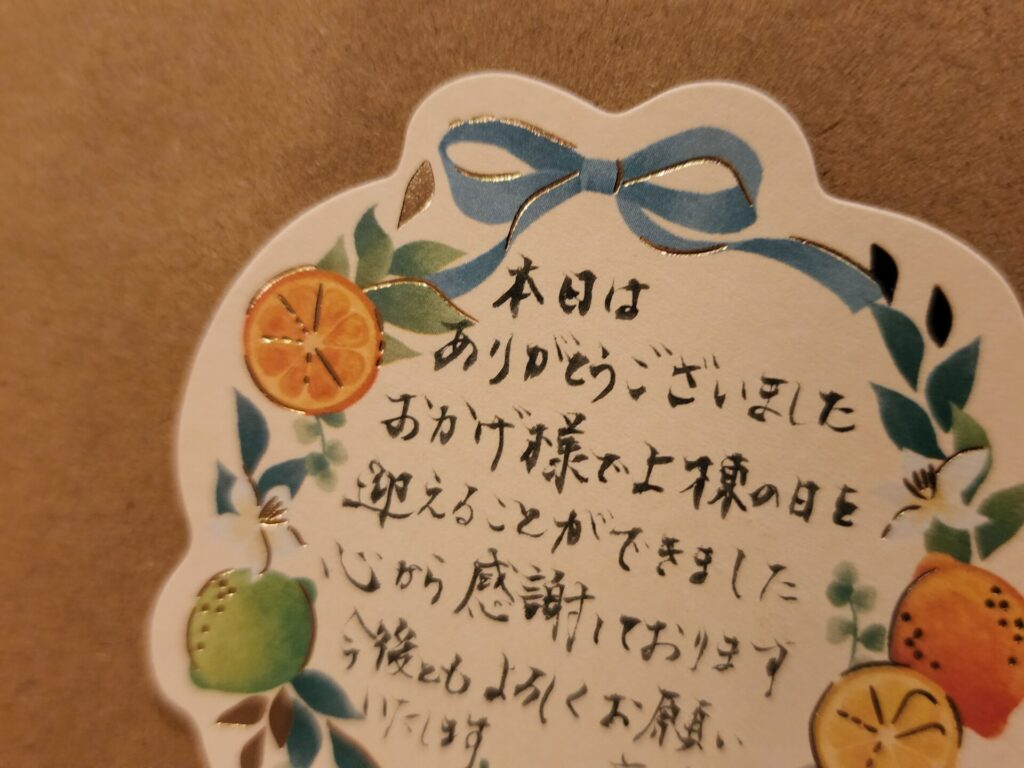 本日は
ありがとうございました
おかげ様で上棟の日を
迎えることができました
心から感謝しております
今後ともよろしくお願い
いたします